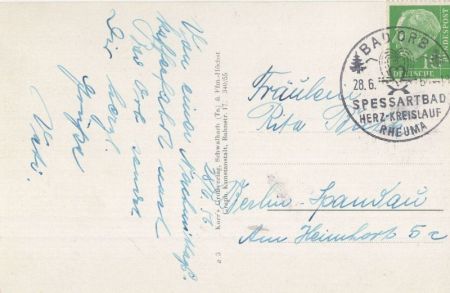 Von einer Nachmittags-
kaffeefahrt nach
Bad Orb sendet
Dir herzl.
Grüße
Vati.
28/6. 56
Kurt's Großverlag, Schwalbach (Ts) & Ffm-Höchst
Graph. Kunstanstalt, Bahnstr. 17, 340/55
BAD ORB
28.6.
SPESSARTBAD
HERZ-KREISLAUF
RHEUMA
10
DEUTSCHE
BUNDESPOST
Fräulein
Rita
Berlin-Spandau
Am Heimhort 5c